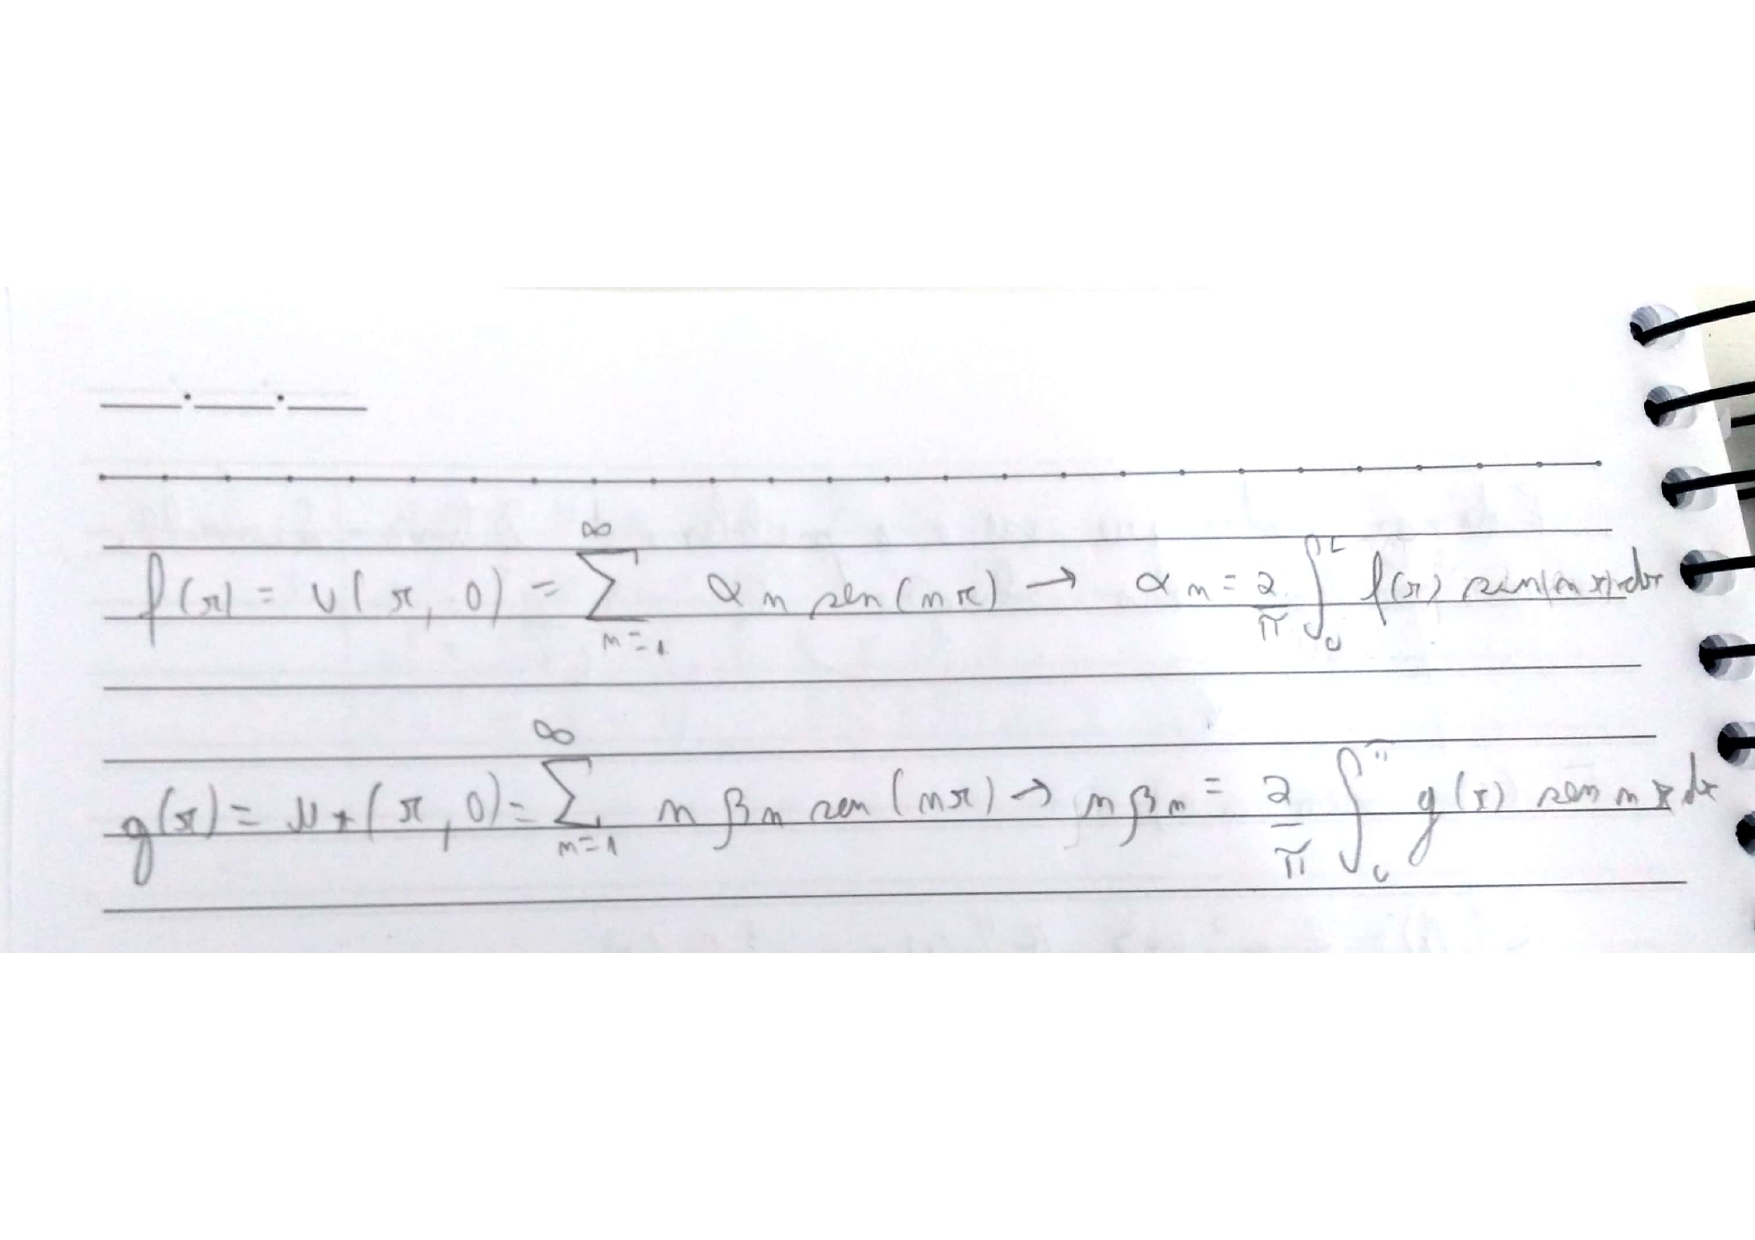 f(x) = u(x, 0) = ∑_{n=1}^{∞} α_n sen(nx) → α_n = 2/π ∫_0^L f(x) sen(nx) dx
g(x) = u_t(x, 0) = ∑_{n=1}^{∞} n β_n sen(nx) → n β_n = 2/π ∫_0^π g(x) sen nx dx